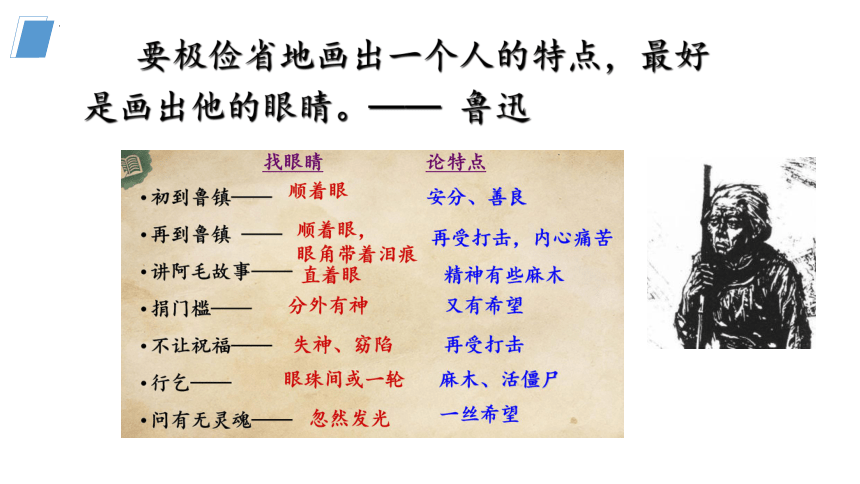 要极俭省地画出一个人的特点，最好
是画出他的眼睛。—— 鲁迅
找眼睛 论特点
•初到鲁镇—— 顺着眼 安分、善良
•再到鲁镇 —— 顺着眼， 再受打击，内心痛苦
眼角带着泪痕
•讲阿毛故事—— 直着眼 精神有些麻木
•捐门槛—— 分外有神 又有希望
•不让祝福—— 失神、窈陷 再受打击
•行乞—— 眼珠间或一轮 麻木、活僵尸
•问有无灵魂—— 忽然发光 一丝希望